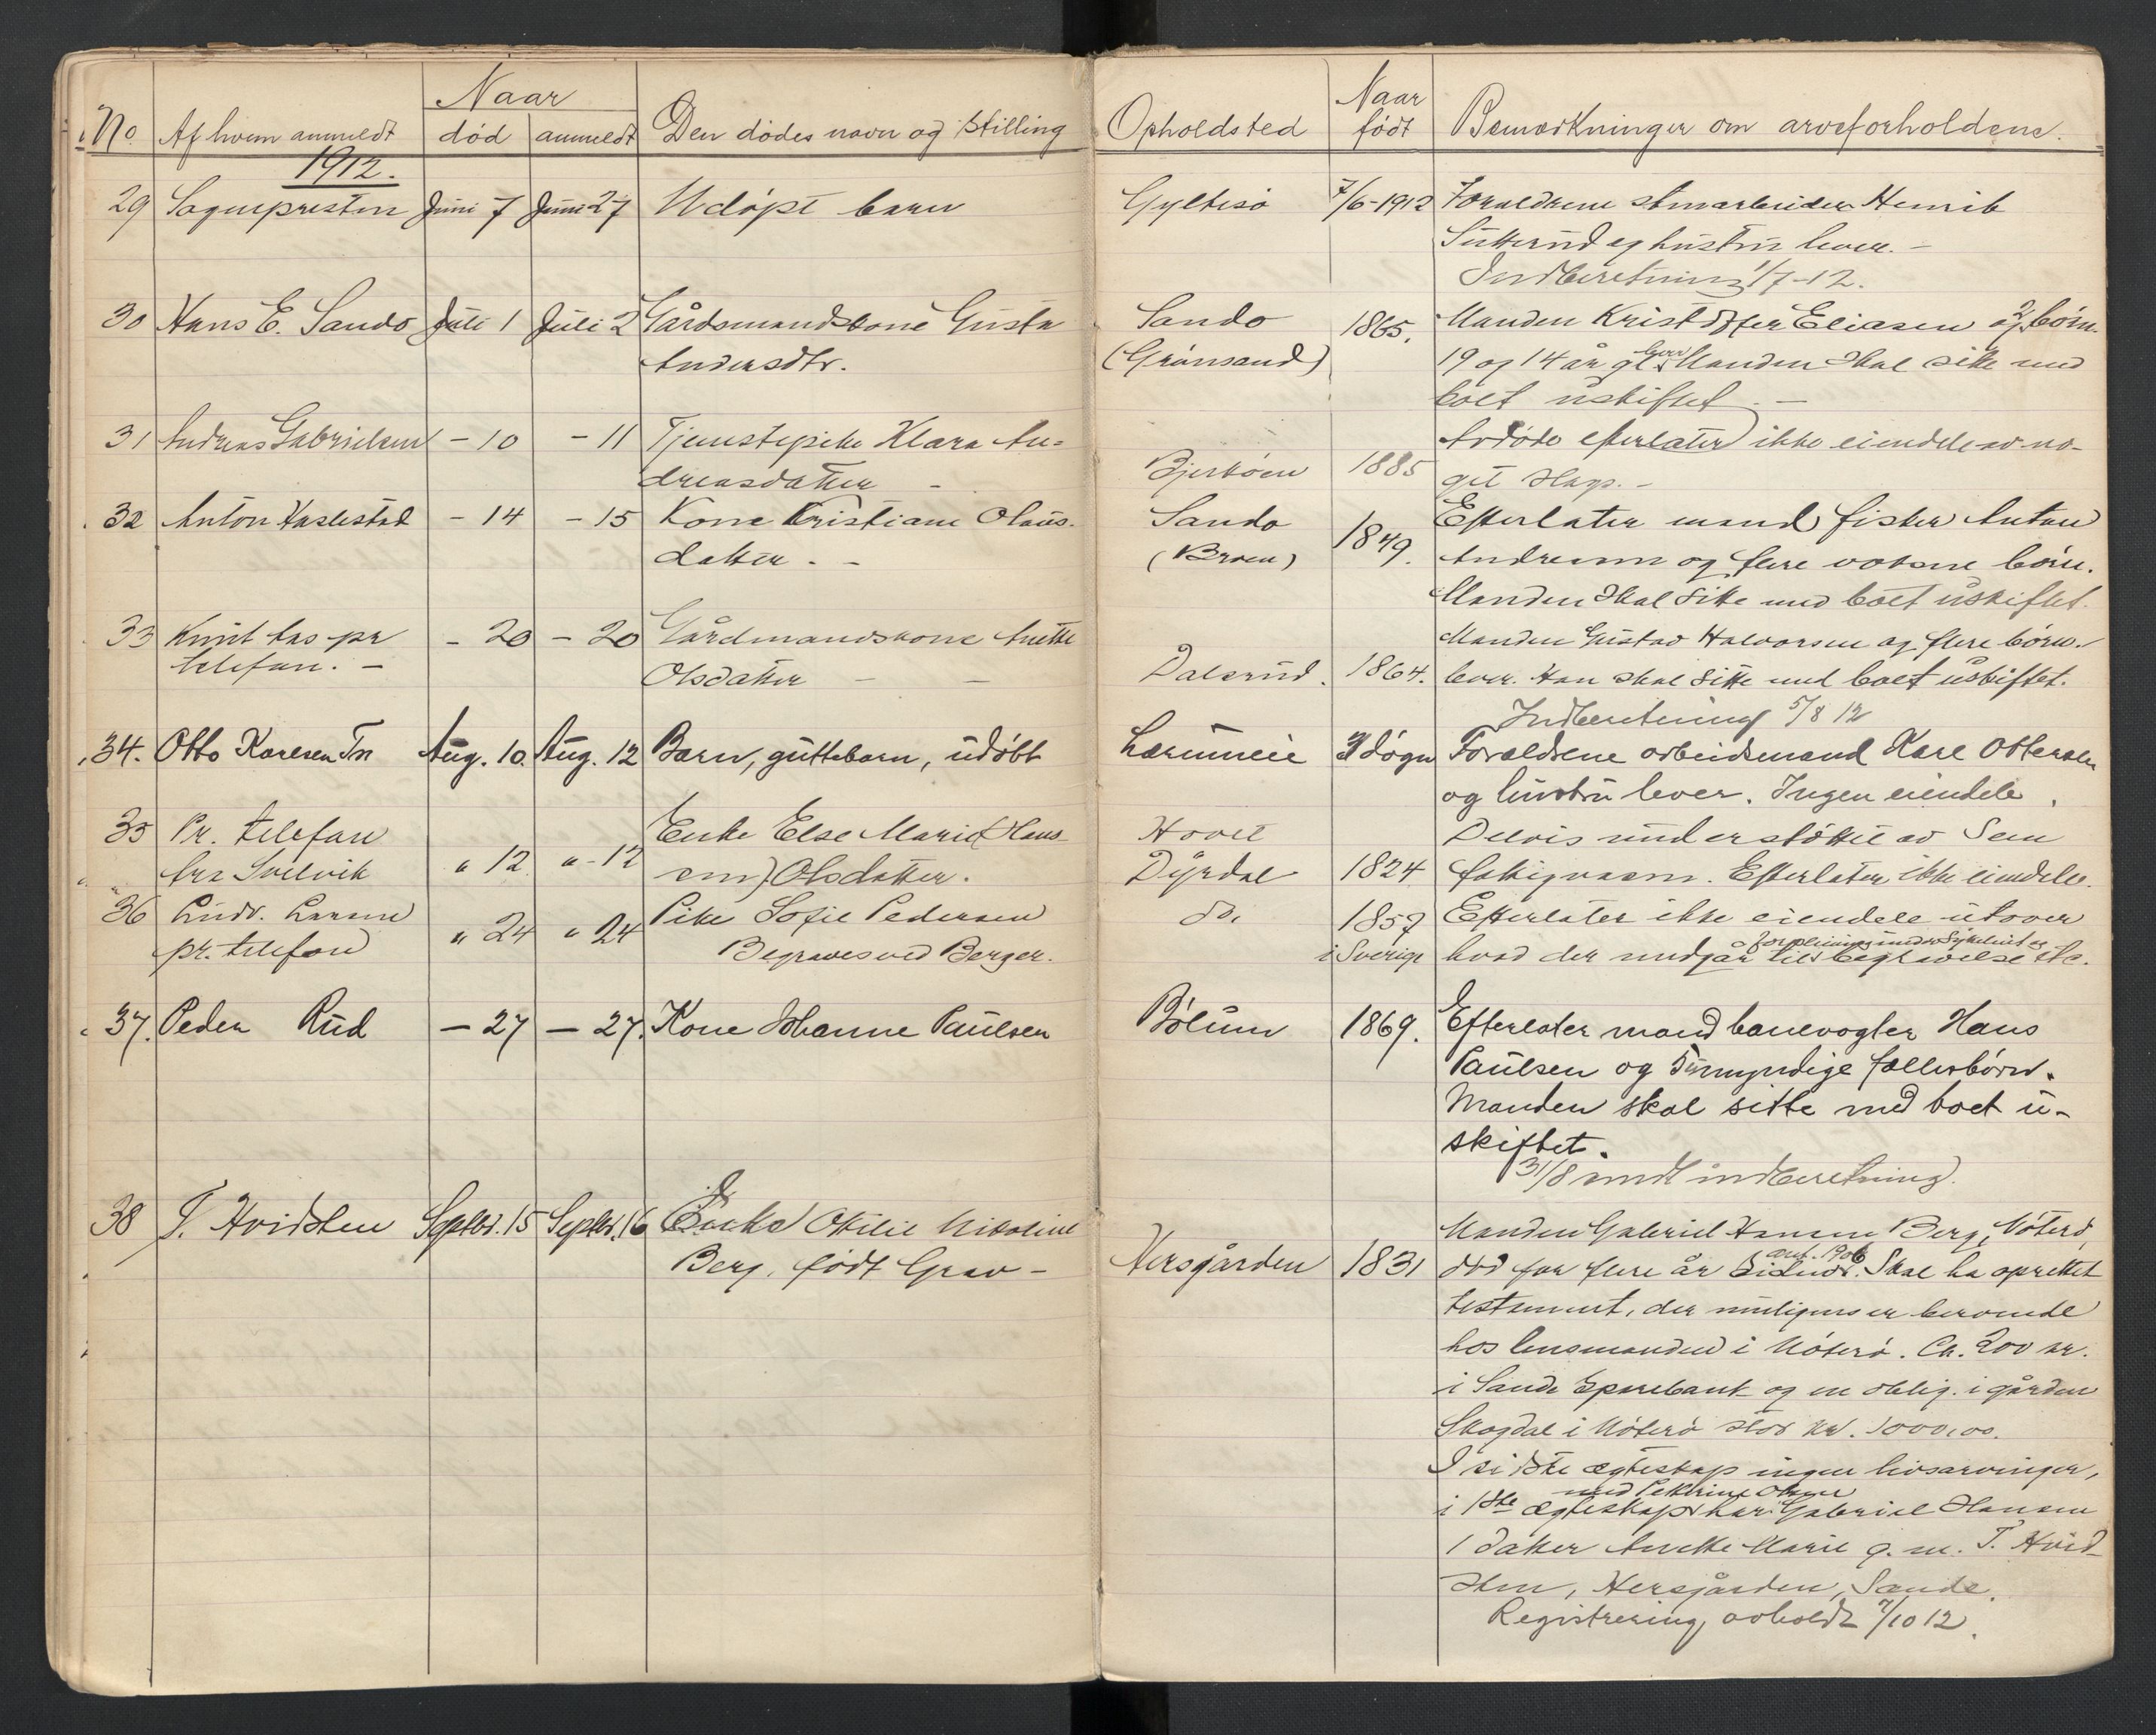 No. Af hvem anmeldt Naar død anmeldt Den dødes navn og stilling Opholdsted Naar født Bemærkninger om arveforholdene.
1912.
29 Sognepresten Juni 7 Juni 27 Udøpt barn Gyltesø 7/6-1912 Forældrene stenarbeider Henrik
og hustru lever. -
Indberetning 1/7-12.
30 Hans E. Sando Juli 1 Juli 2 Gårdsmandskone Gusta Sando 1865. Manden Kristoffer Eliasen og 2 børn
Andersdtr. (Grønsand) 19 og 14 år gl. lever Manden skal sitte med
boet uskiftet. -
31 Andreas Gabrielsen - 10 - 11 Tjenestepike Klara An- Avdøde efterlater ikke eiendele av no-
dreasdatter - Bjerkøen 1885 get slags. -
32 Anton Haslestad - 14 - 15 Kone Kristiane Olaus- Sando 1849. Efterlater mand fisker Anton
datter. - (Broen) Andreasen og flere voksne børn.
Manden skal sitte med boet uskiftet.
33 Knut Aas pr - 20 - 20 Gårdmandskone Anette Manden Gustav Halvorsen og flere børn
telefon. - Olsdatter - - Dalsrud. 1864. lever. Han skal sitte med boet uskiftet.
Indberetning 5/8 12
34. Otto Karlsen Aug. 10. Aug. 12 Barn, guttebarn, udøbt Lærumeie døgn Forældrene arbeidsmand Karl Ottersen
og hustru lever. Ingen eiendele.
35 Pr. telefon " 12 " - 12 Enke Else Marie (Hans- Hovet Delvis understøttet av Sem
fra Svelvik en) Olsdatter. Dyrdal 1824 fattigvæsen. Efterlater ikke eiendele.
36 Ludv. Larsen " 24 " 24 Pike Sofie Pedersen do. 1857 Efterlater ikke eiendele utover
pr. telefon Begraves ved Berger. i Sverige hvad der medgår til forpleining ved Sykehuset og begravelse etc.
37. Peder Rud - 27 - 27. Kone Johanne Paulsen Bølum 1869. Efterlater mand banevogter Hans
Paulsen og 5 umyndige fællesbørn.
Manden skal sitte med boet u-
skiftet.
31/8 sendt indberetning.
38 T. Hvidsten Septbr. 15 Septbr. 16 Enke Otilie Nikoline Manden Gabriel Hansen Berg, Nøterø,
Berg, født Grav - Hersgården 1831 død for flere år siden ant. 1906. Skal ha oprettet
testament, der muligens er beroende
hos lensmanden i Nøterø. Ca. 200 kr.
i Sande Sparebank og en oblig. i gården
Skogdal i Nøterø stor kr. 1000,00.
I sidste ægteskap ingen livsarvinger,
i 1ste ægteskap med Petrine Olsen har Gabriel Hansen
1 datter Anette Marie g. m. T. Hvid-
sten, Hersgården, Sande.
Registrering avholdt 7/10 12.